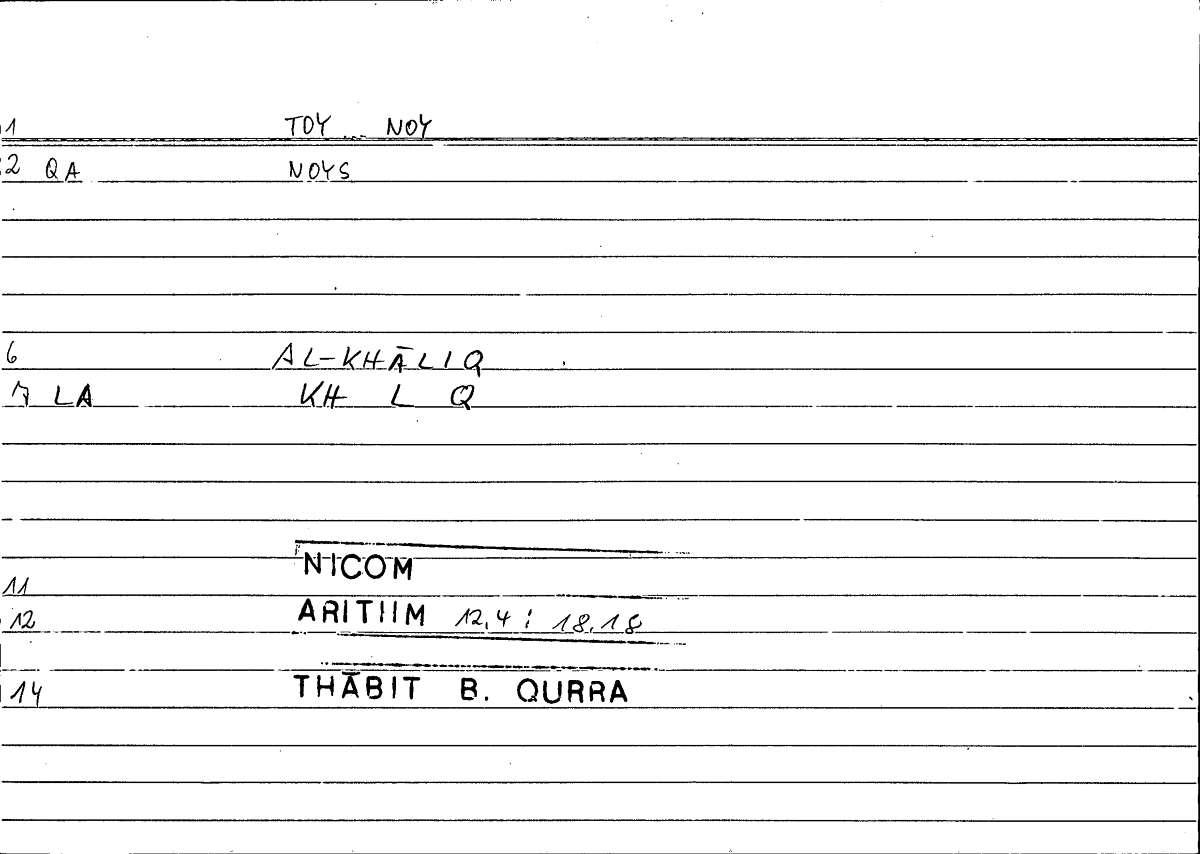 01 TOY ... NOY
02 QA NOYS
6 AL-KHĀLIQ
7 LA KH L Q
NICOM
11
12 ARITIIM 12,4 ; 18.18
14 THĀBIT B. QURRA